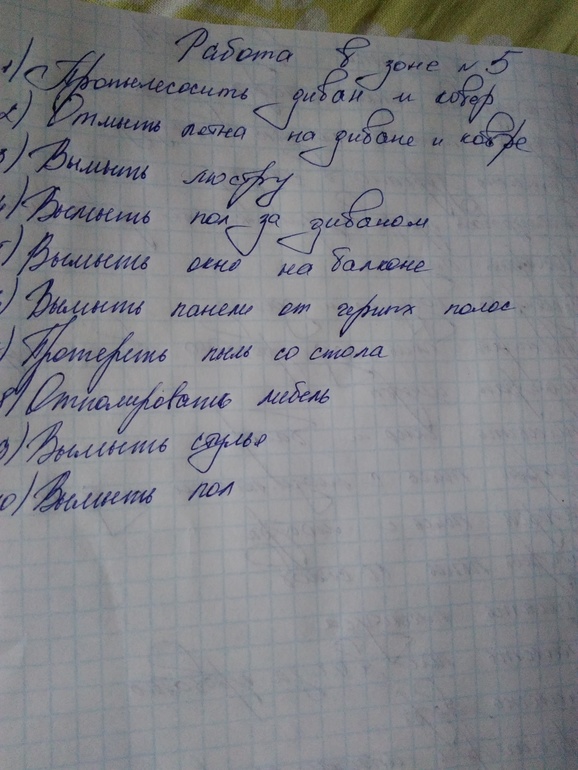 Работа в зоне №5
1) Пропылесосить диван и ковёр
2) Отмыть пятна на диване и ковре
3) Вымыть люстру
4) Вымыть пол за диваном
5) Вымыть окно на балконе
6) Вымыть панели от черных полос
7) Протереть пыль со стола
8) Отполировать мебель
9) Вымыть стулья
10) Вымыть пол